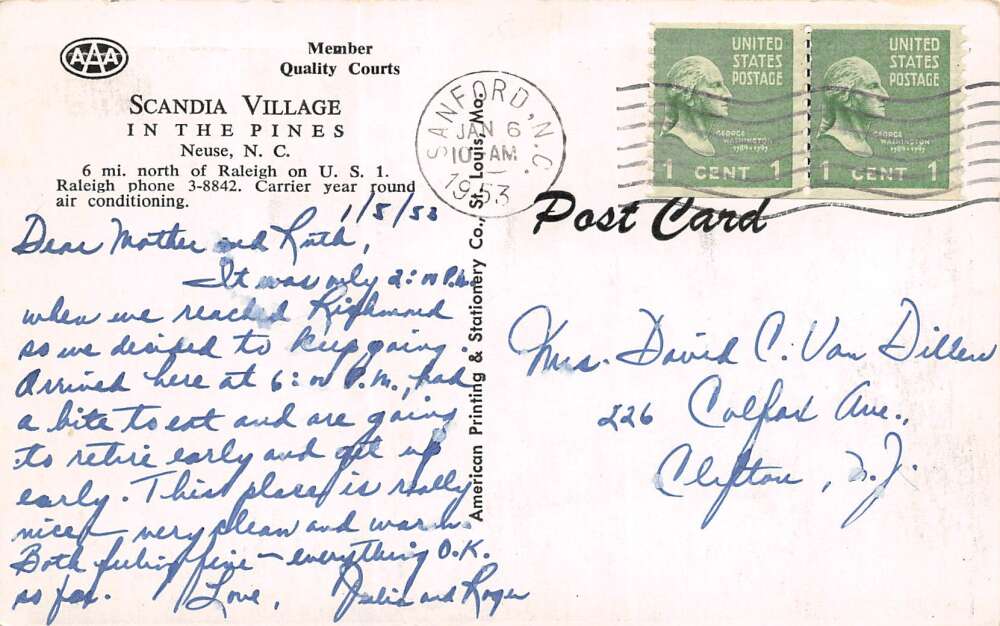 AAA
Member
Quality Courts
SCANDIA VILLAGE
IN THE PINES
Neuse, N. C.
6 mi. north of Raleigh on U. S. 1.
Raleigh phone 3-8842. Carrier year round
air conditioning.
1/5/53
Dear Mother and Ruth,
It was only 2:00 P.M.
when we reached Richmond
so we decided to keep going.
Arrived here at 6:00 P.M., had
a bite to eat and are going
to retire early and get up
early. This place is really
nice, very clean and warm.
Both feeling fine – everything O.K.
so far. Love, Julia and Roger
American Printing & Stationery Co., St. Louis, Mo.
SANFORD, N.C.
JAN 6
10 AM
1953
UNITED
STATES
POSTAGE
GEORGE
WASHINGTON
1789-1797
1 CENT 1
UNITED
STATES
POSTAGE
GEORGE
WASHINGTON
1789-1797
1 CENT 1
Post Card
Mrs. David C. Van Dillen
226 Colfax Ave.,
Clifton, N.J.